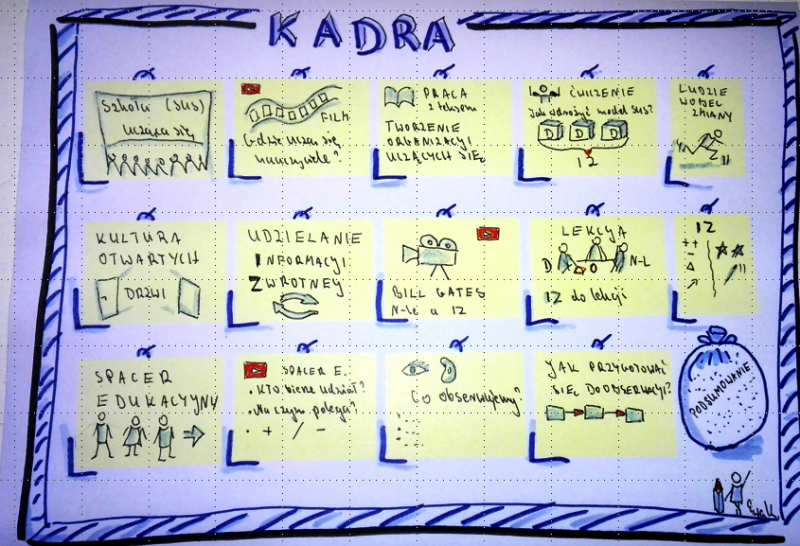 KADRA
Szkoła (SUS)
ucząca się
FILM
Gdzie uczą się
nauczyciele?
PRACA
z tekstem
TWORZENIE
ORGANIZACJI
UCZĄCYCH SIĘ
ĆWICZENIE
Jak wdrożyć model SUS?
D D D
12
LUDZIE
WOBEC
ZMIANY
KULTURA
OTWARTYCH
DRZWI
UDZIELANIE
INFORMACJI
ZWROTNEJ
BILL GATES
N-le a IZ
LEKCJA
D O N-L
IZ do lekcji
IZ
++
-
SPACER
EDUKACYJNY
SPACER E.
• KTO bierze udział?
• Na czym polega?
• + / -
Co obserwujemy?
JAK PRZYGOTOWAĆ
SIĘ DO OBSERWACJI?
PODSUMOWANIE